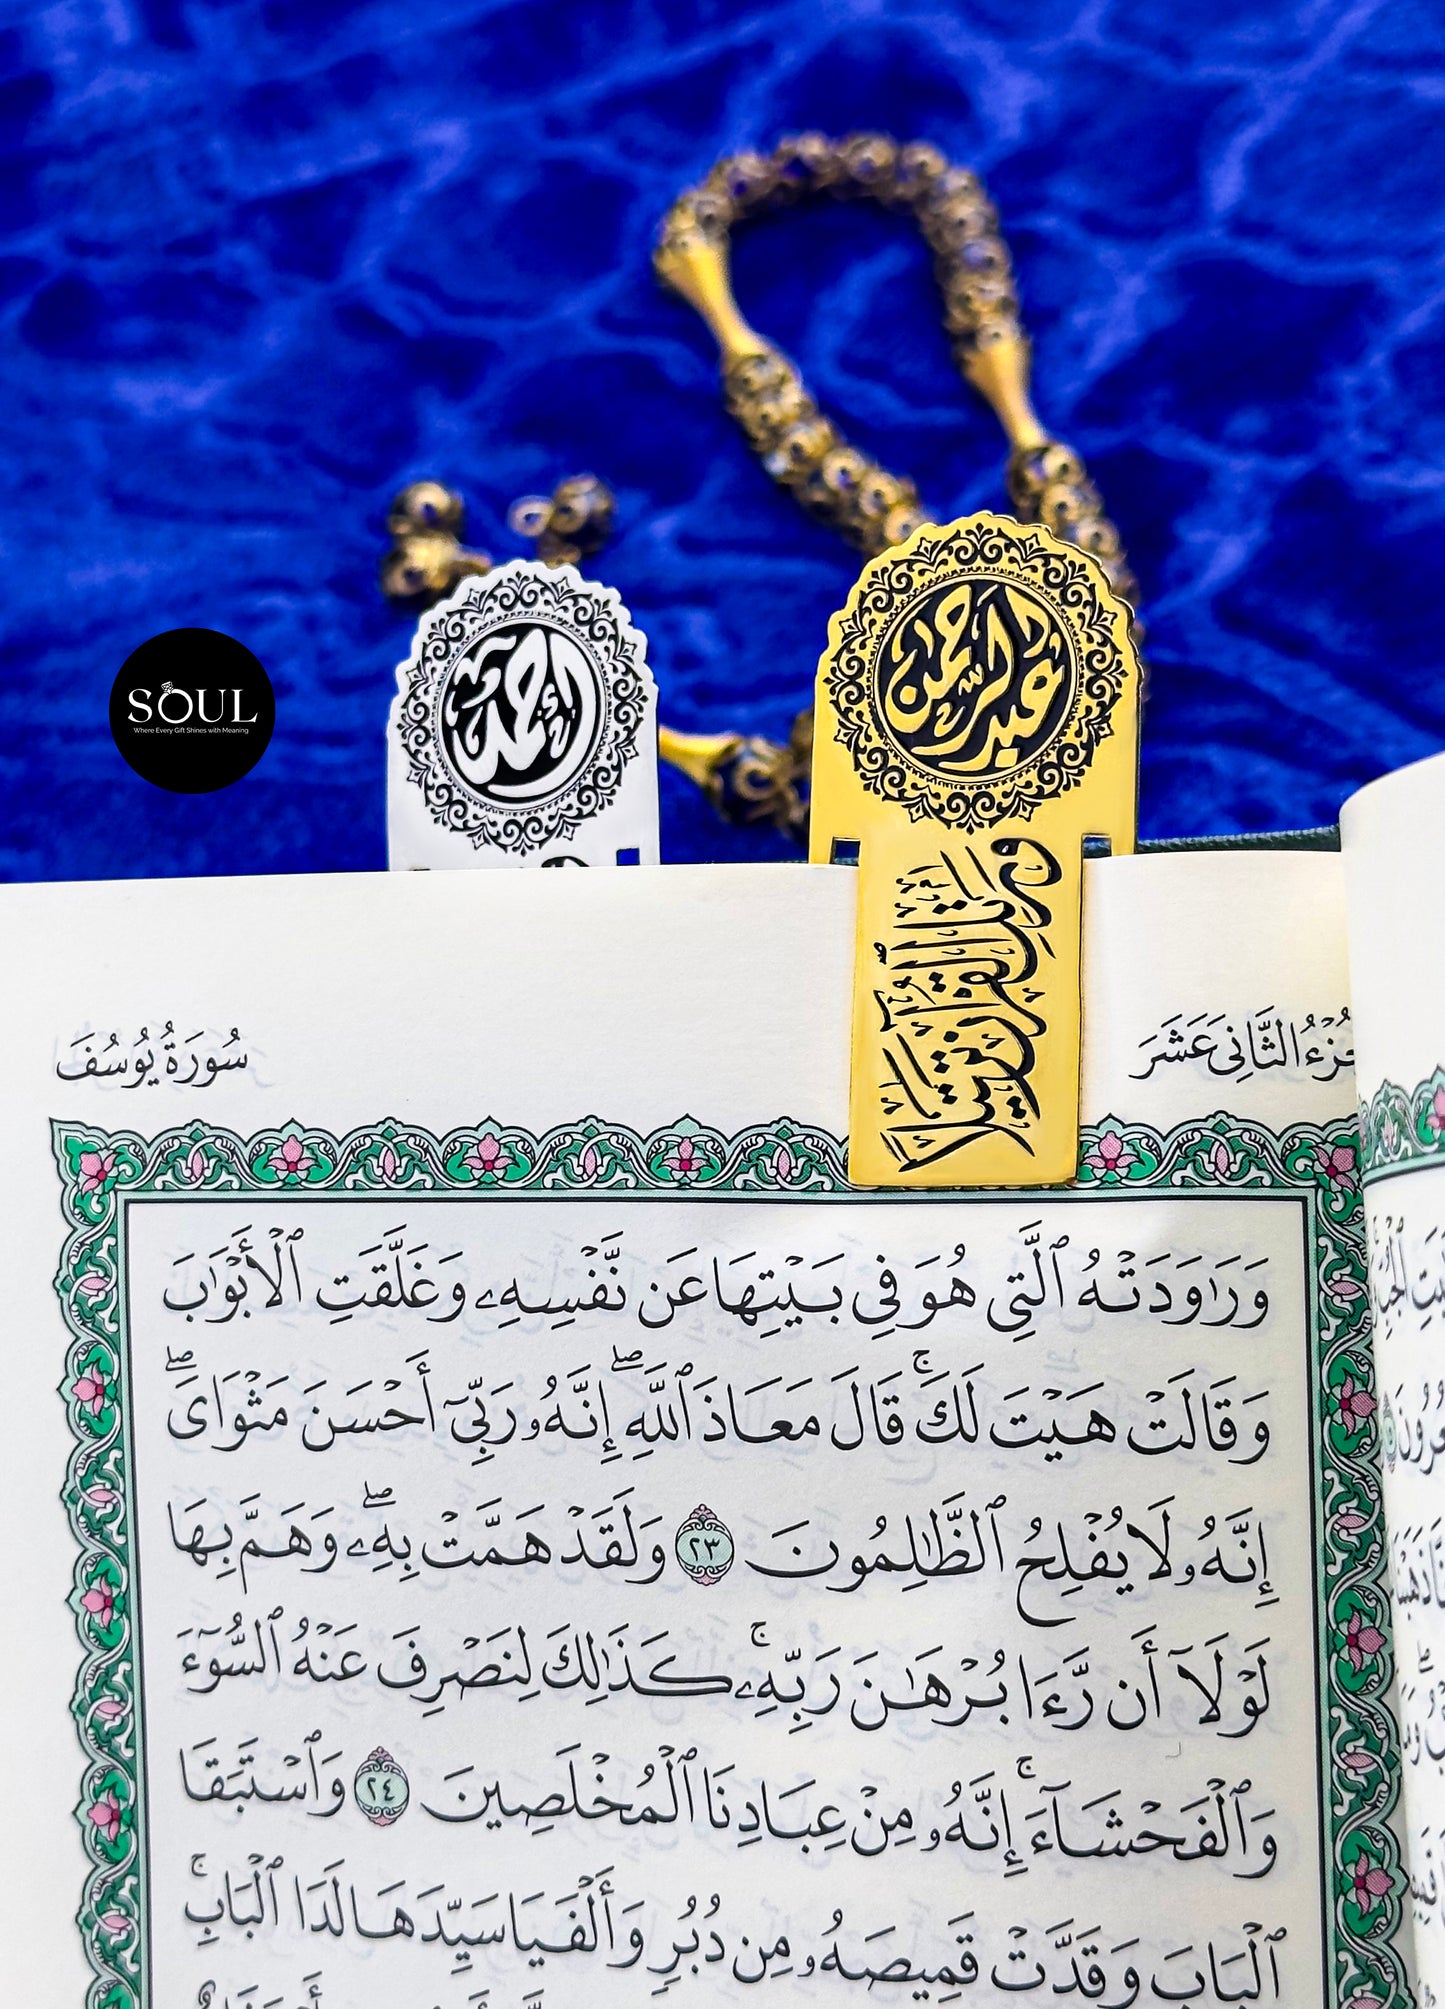 SOUL
Where Every Gift Shines with Meaning
أحمد
عبد الرحمن
ورتل القرآن ترتيلا
سُورَةُ يُوسُفَ
الجُزْءُ الثَّانِي عَشَرَ
وَرَٰوَدَتْهُ ٱلَّتِى هُوَ فِى بَيْتِهَا عَن نَّفْسِهِۦ وَغَلَّقَتِ ٱلْأَبْوَٰبَ
وَقَالَتْ هَيْتَ لَكَ ۚ قَالَ مَعَاذَ ٱللَّهِ ۖ إِنَّهُۥ رَبِّىٓ أَحْسَنَ مَثْوَاىَ ۖ
إِنَّهُۥ لَا يُفْلِحُ ٱلظَّٰلِمُونَ ٢٣ وَلَقَدْ هَمَّتْ بِهِۦ ۖ وَهَمَّ بِهَا
لَوْلَآ أَن رَّءَا بُرْهَٰنَ رَبِّهِۦ ۚ كَذَٰلِكَ لِنَصْرِفَ عَنْهُ ٱلسُّوٓءَ
وَٱلْفَحْشَآءَ ۚ إِنَّهُۥ مِنْ عِبَادِنَا ٱلْمُخْلَصِينَ ٢٤ وَٱسْتَبَقَا
ٱلْبَابَ وَقَدَّتْ قَمِيصَهُۥ مِن دُبُرٍ وَأَلْفَيَا سَيِّدَهَا لَدَا ٱلْبَابِ ۚ